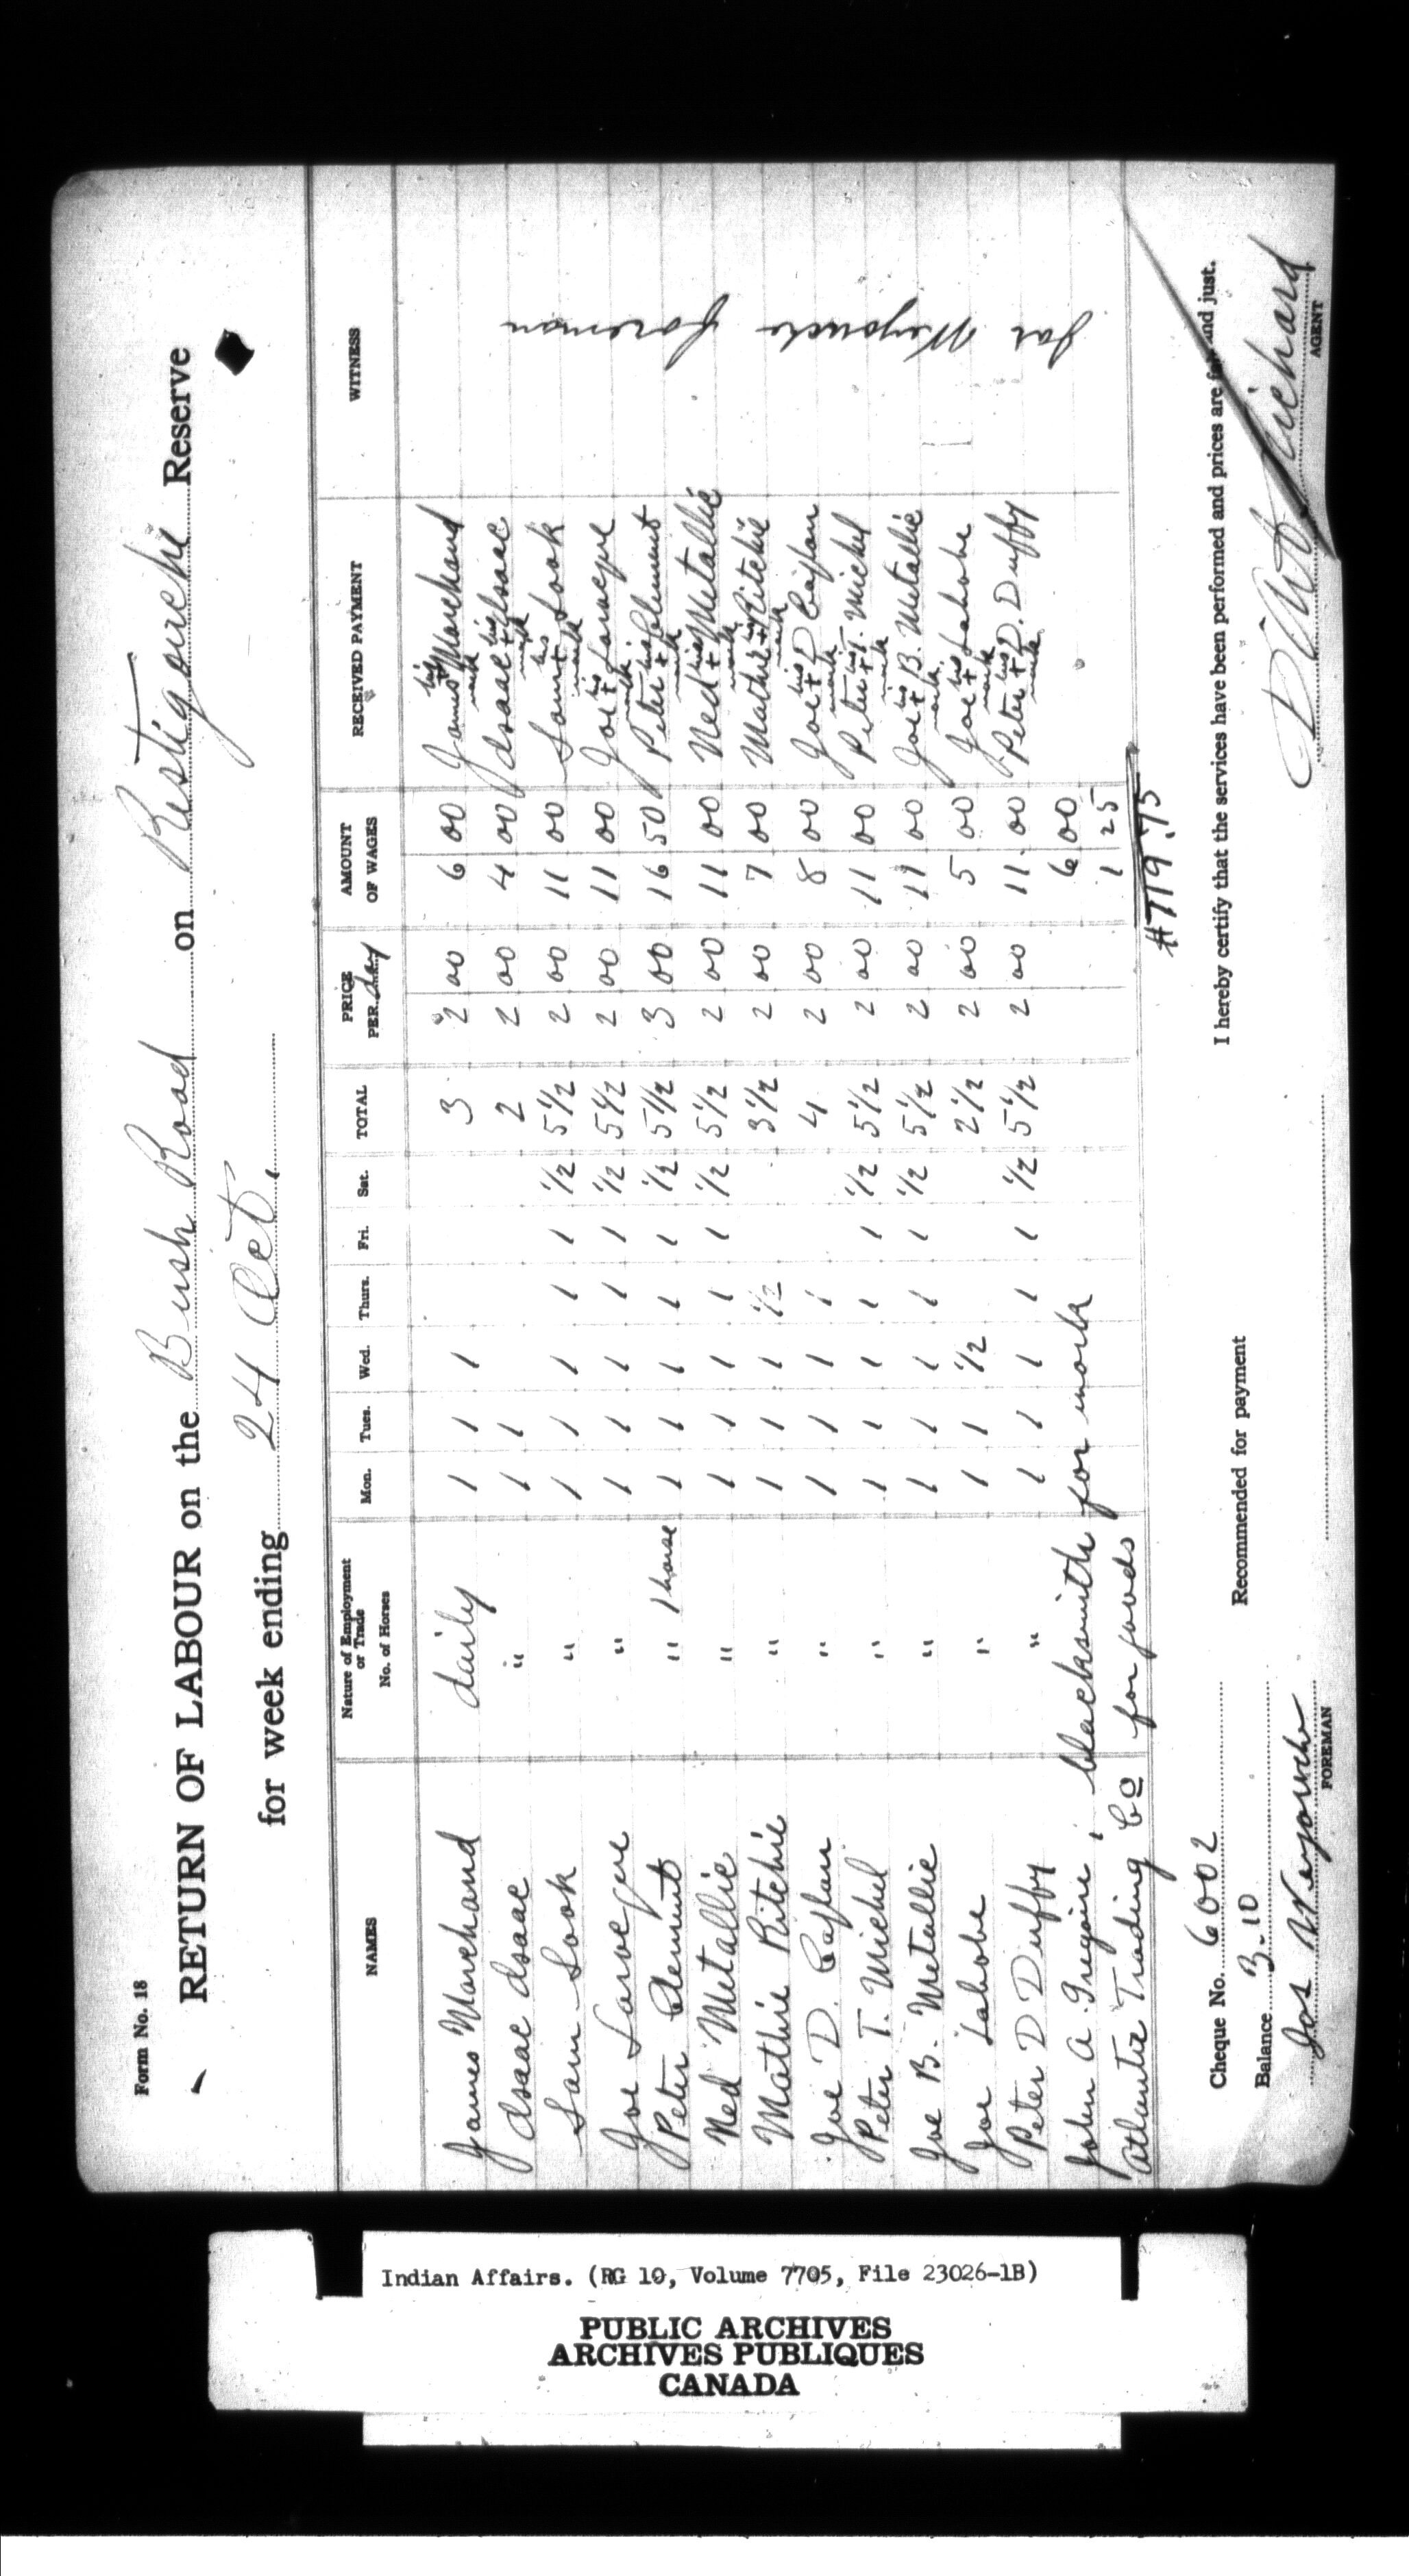 Form No. 18
RETURN OF LABOUR on the Bush Road on Restigouche Reserve
for week ending 24 Oct.
NAMES Nature of Employment or Trade No. of Horses Mon. Tues. Wed. Thurs. Fri. Sat. TOTAL PRICE PER day AMOUNT OF WAGES RECEIVED PAYMENT WITNESS
James Marchand daily 1 1 1 3 2 00 6 00 James his + mark Marchand
Isaac Isaac " 1 1 2 2 00 4 00 Isaac his + mark Isaac
Sam Sook " 1 1 1 1 1 1/2 5 1/2 2 00 11 00 Sam his + mark Sook
Joe Larocque " 1 1 1 1 1 1/2 5 1/2 2 00 11 00 Joe his + mark Larocque
Peter Clement " 1 horse 1 1 1 1 1 1/2 5 1/2 3 00 16 50 Peter his + mark Clement
Ned Metallic " 1 1 1 1 1 1/2 5 1/2 2 00 11 00 Ned his + mark Metallic
Mathie Ritchie " 1 1 1 1/2 3 1/2 2 00 7 00 Mathie his + mark Ritchie
Joe D. Caplan " 1 1 1 1 4 2 00 8 00 Joe his + mark D Caplan
Peter T. Michel " 1 1 1 1 1 1/2 5 1/2 2 00 11 00 Peter his + mark T. Michel
Joe B. Metallic " 1 1 1 1 1 1/2 5 1/2 2 00 11 00 Joe his + mark B. Metallic
Joe Labobe " 1 1 1/2 2 1/2 2 00 5 00 Joe his + mark Labobe
Peter D Duffy " 1 1 1 1 1 1/2 5 1/2 2 00 11 00 Peter his + mark D. Duffy
John A. Gregoire, blacksmith for work 6 00
Atlantic Trading Co for goods 1 25
Foreman
$119.75
Cheque No. 6002
Balance 3.10
Recommended for payment
I hereby certify that the services have been performed and prices are fair and just.
Jos
FOREMAN
Pichard
AGENT
Indian Affairs. (RG 10, Volume 7705, File 23026-1B)
PUBLIC ARCHIVES
ARCHIVES PUBLIQUES
CANADA